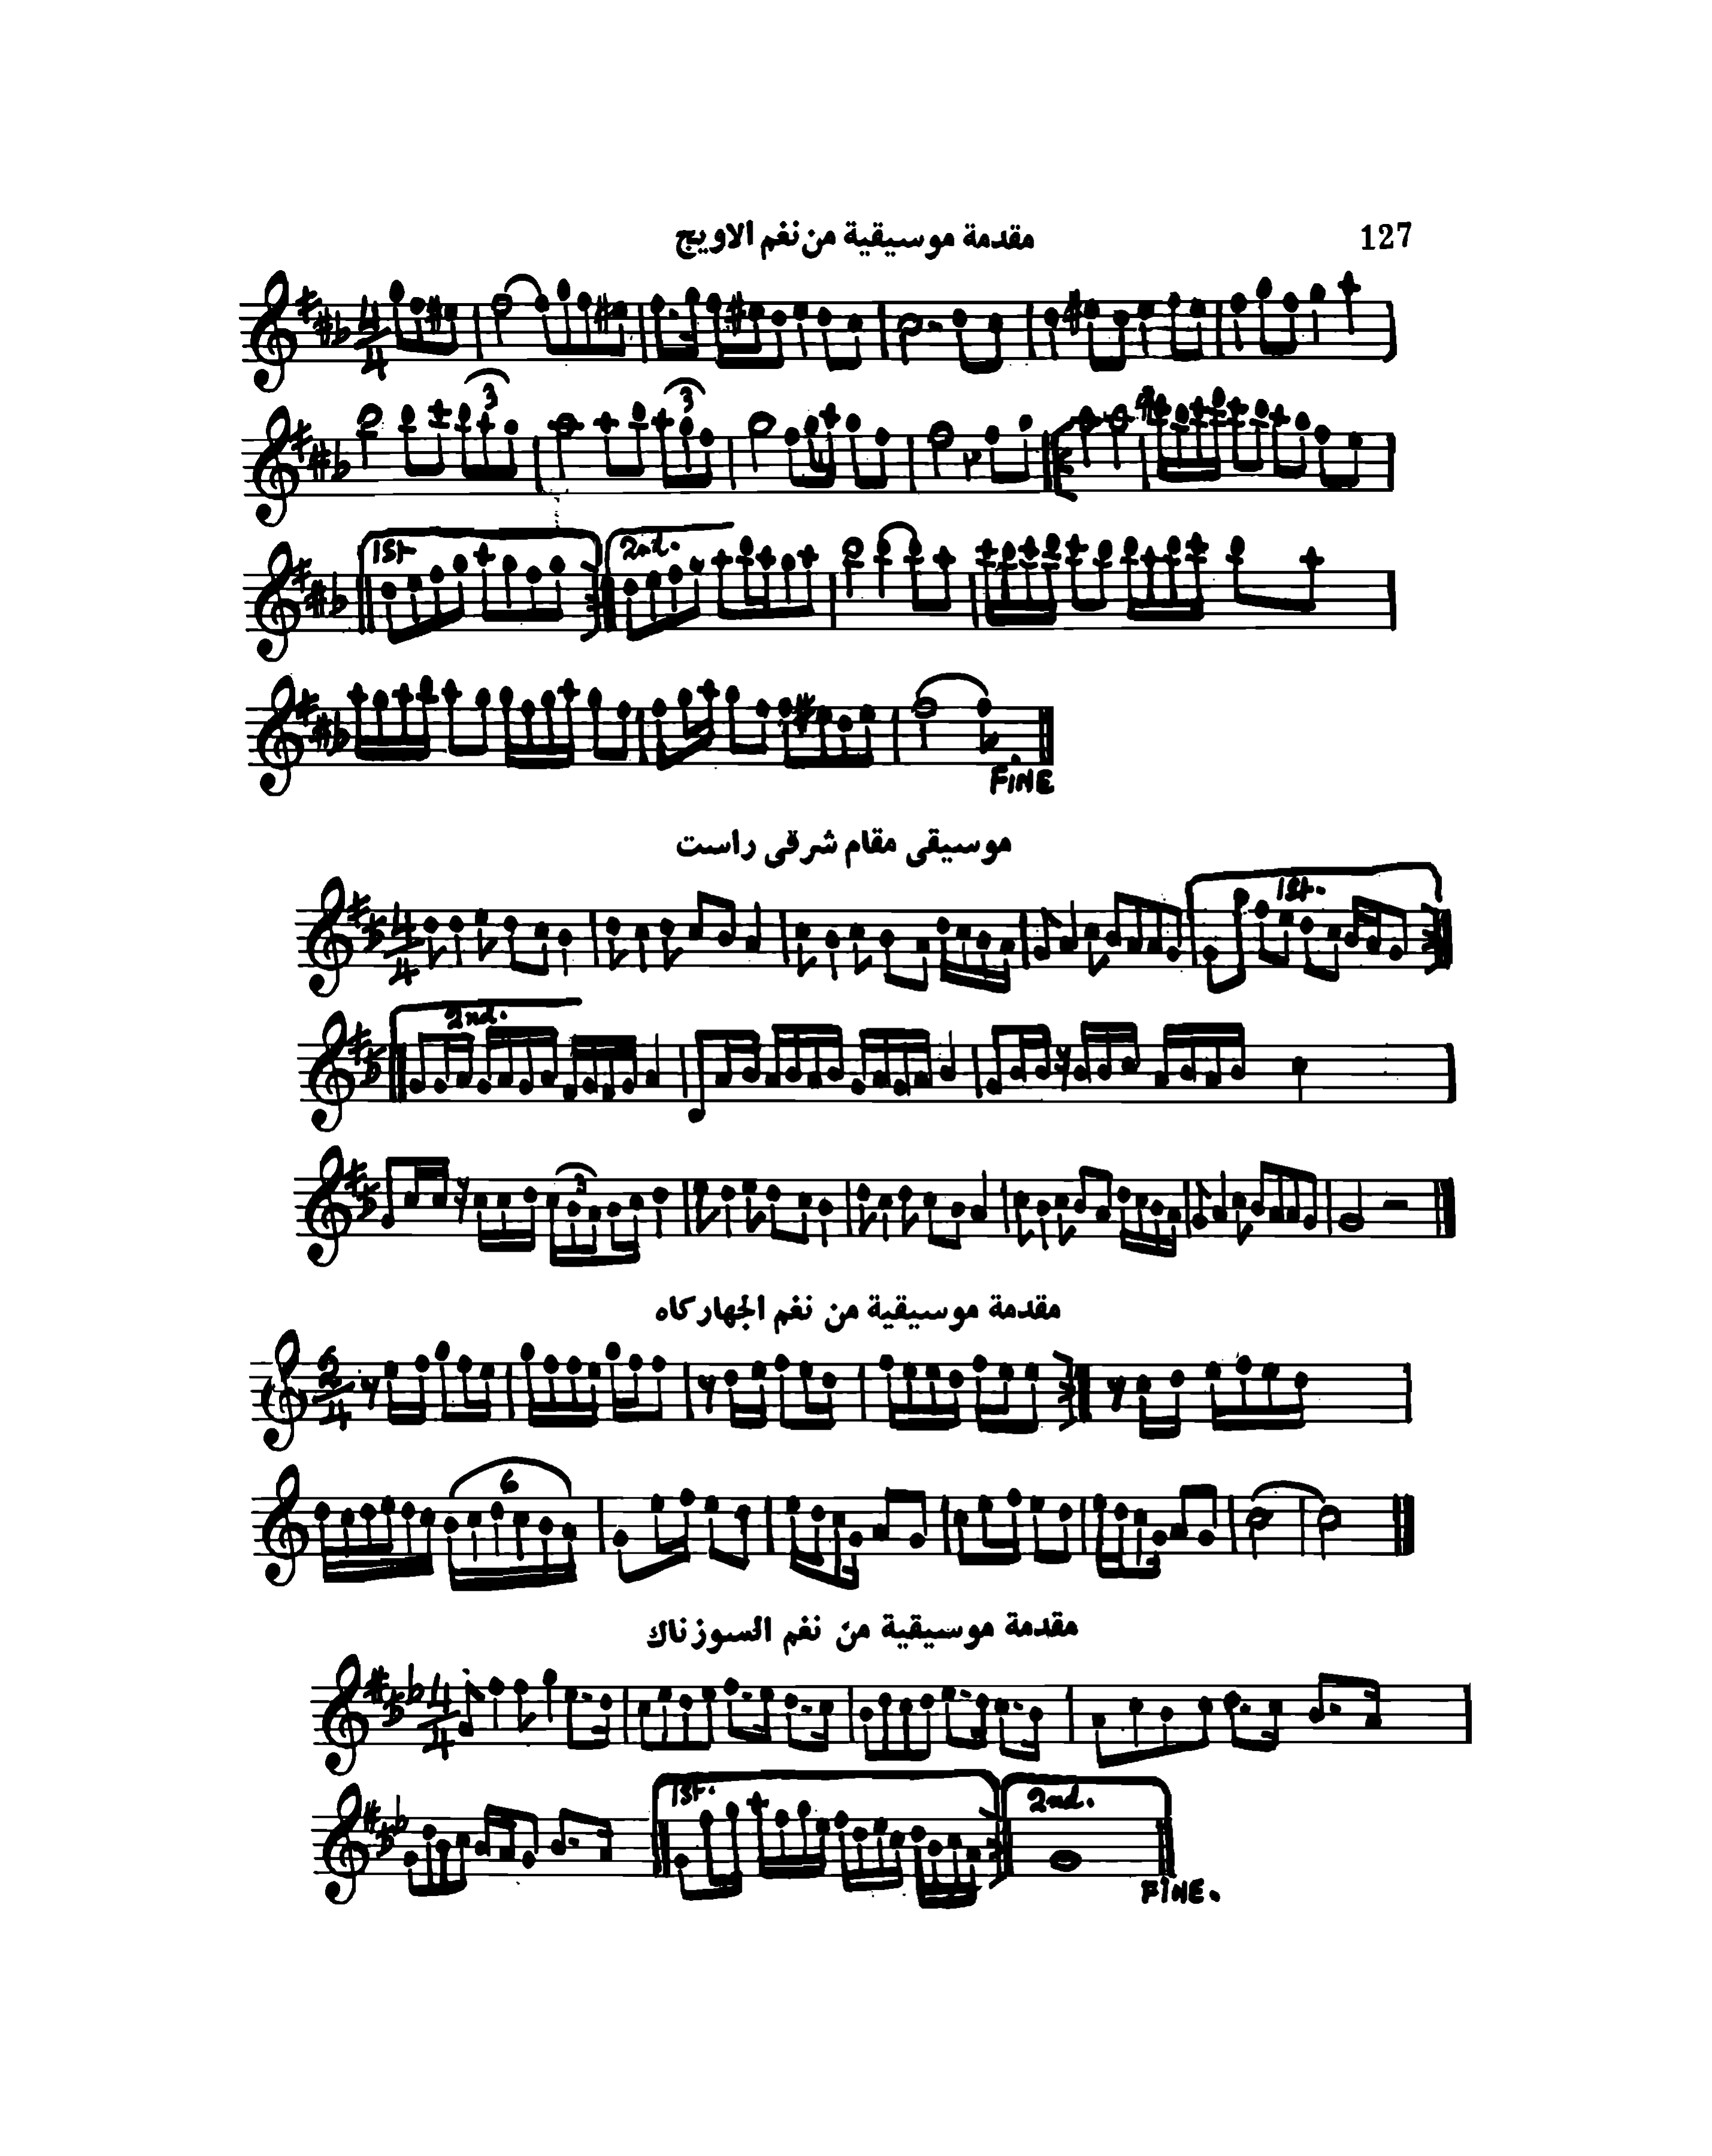 127
مقدمة موسيقية من نغم الاويج
4/4
3
3
1st
2nd.
FINE
موسيقى مقام شرقى راست
4/4
1st.
2nd.
3
مقدمة موسيقية من نغم الجهاركاه
2/4
6
مقدمة موسيقية من نغم السوزناك
4/4
1st.
2nd.
FINE.